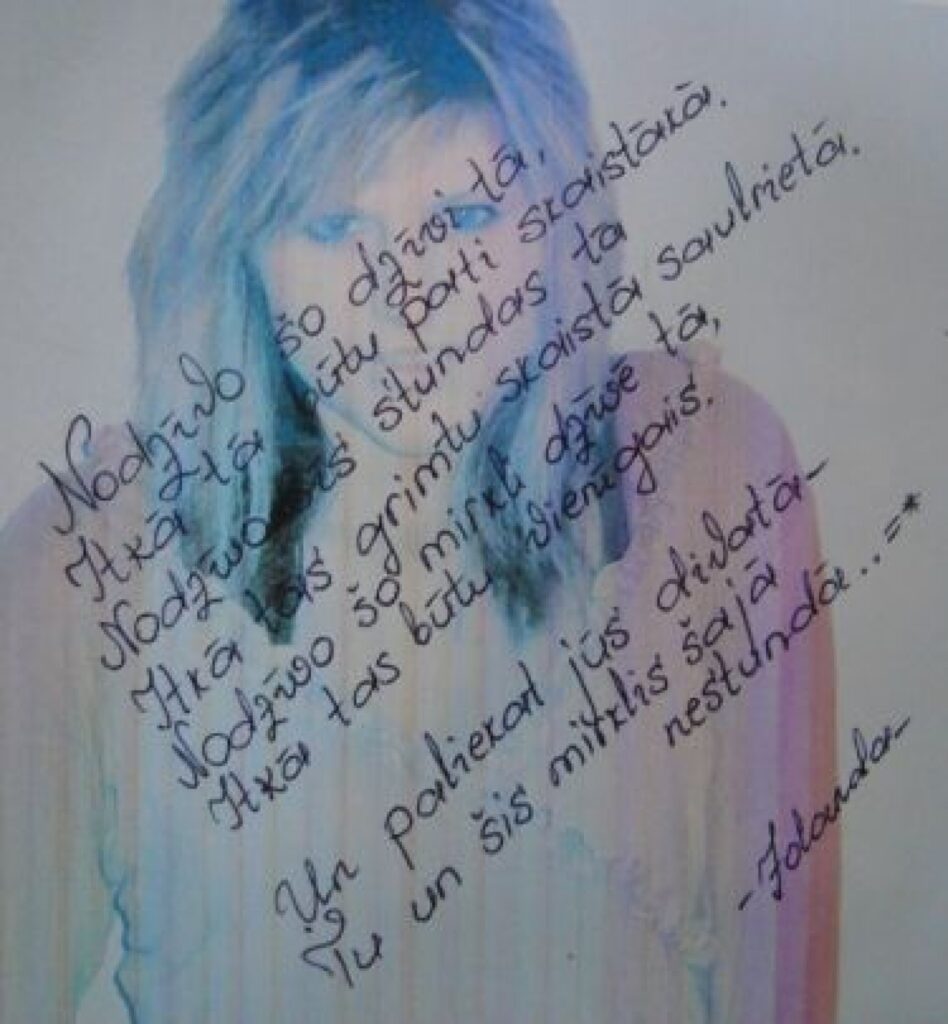 Nodzīvo šo dzīvi tā,
Itkā tā būtu pati skaistākā.
Nodzīvo šīs stundas tā
Itkā tās grimtu skaistā saulrietā.
Nodzīvo šo mirkli dzīvē tā,
Itkā tas būtu vienīgais.
Un paliekat jūs divatā-
Tu un šis mirklis šajā
nestundā..=*
-Jolanda-